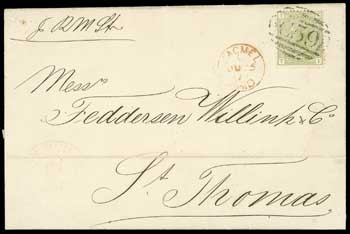 p R M St.
JACMEL
C59
T T
Messrs
Feddersen Willink & Co
St Thomas